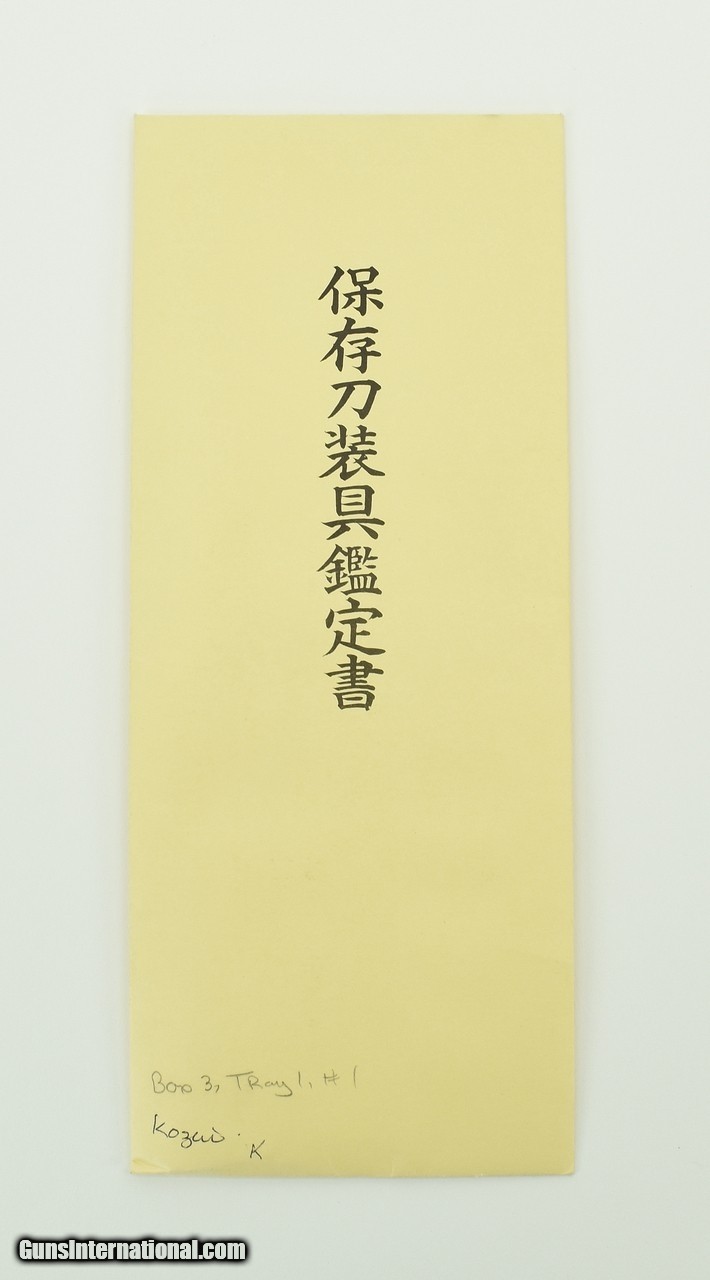 保存刀装具鑑定書
Box 3, TRay 1, #1
Kozui.
K
GunsInternational.com